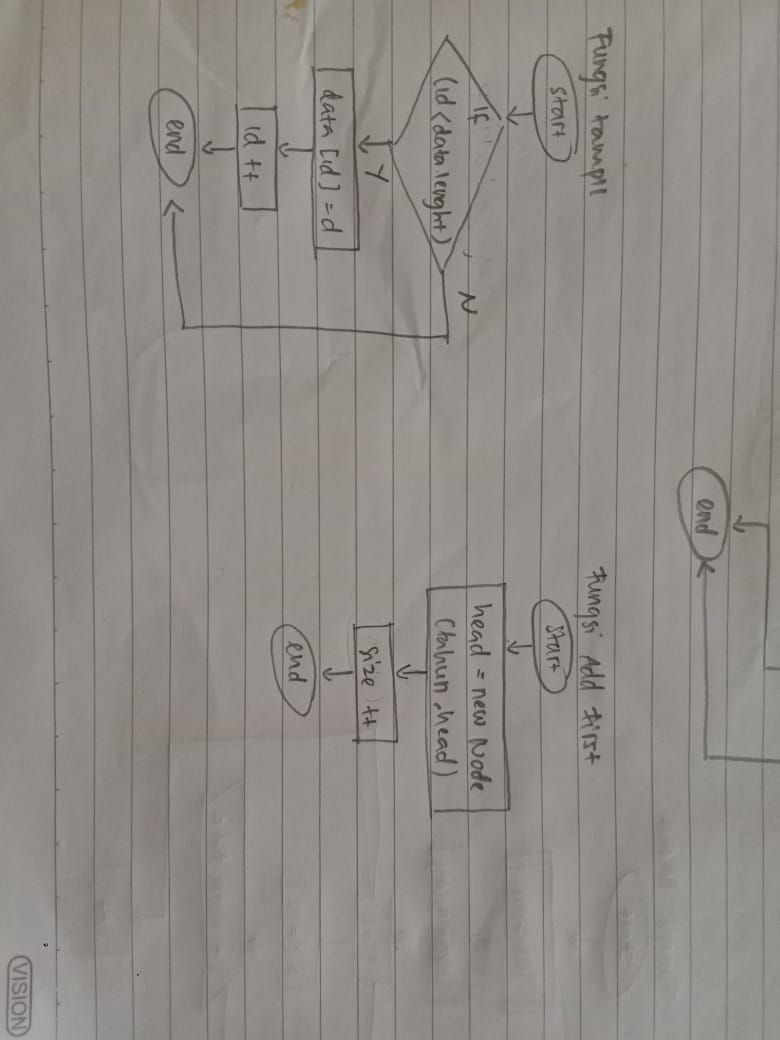 end
Fungsi tampil
start
If
(id < data lenght)
N
Y
data [id] = d
id ++
end
Fungsi Add First
start
head = new Node
(tahun, head)
size ++
end
VISION